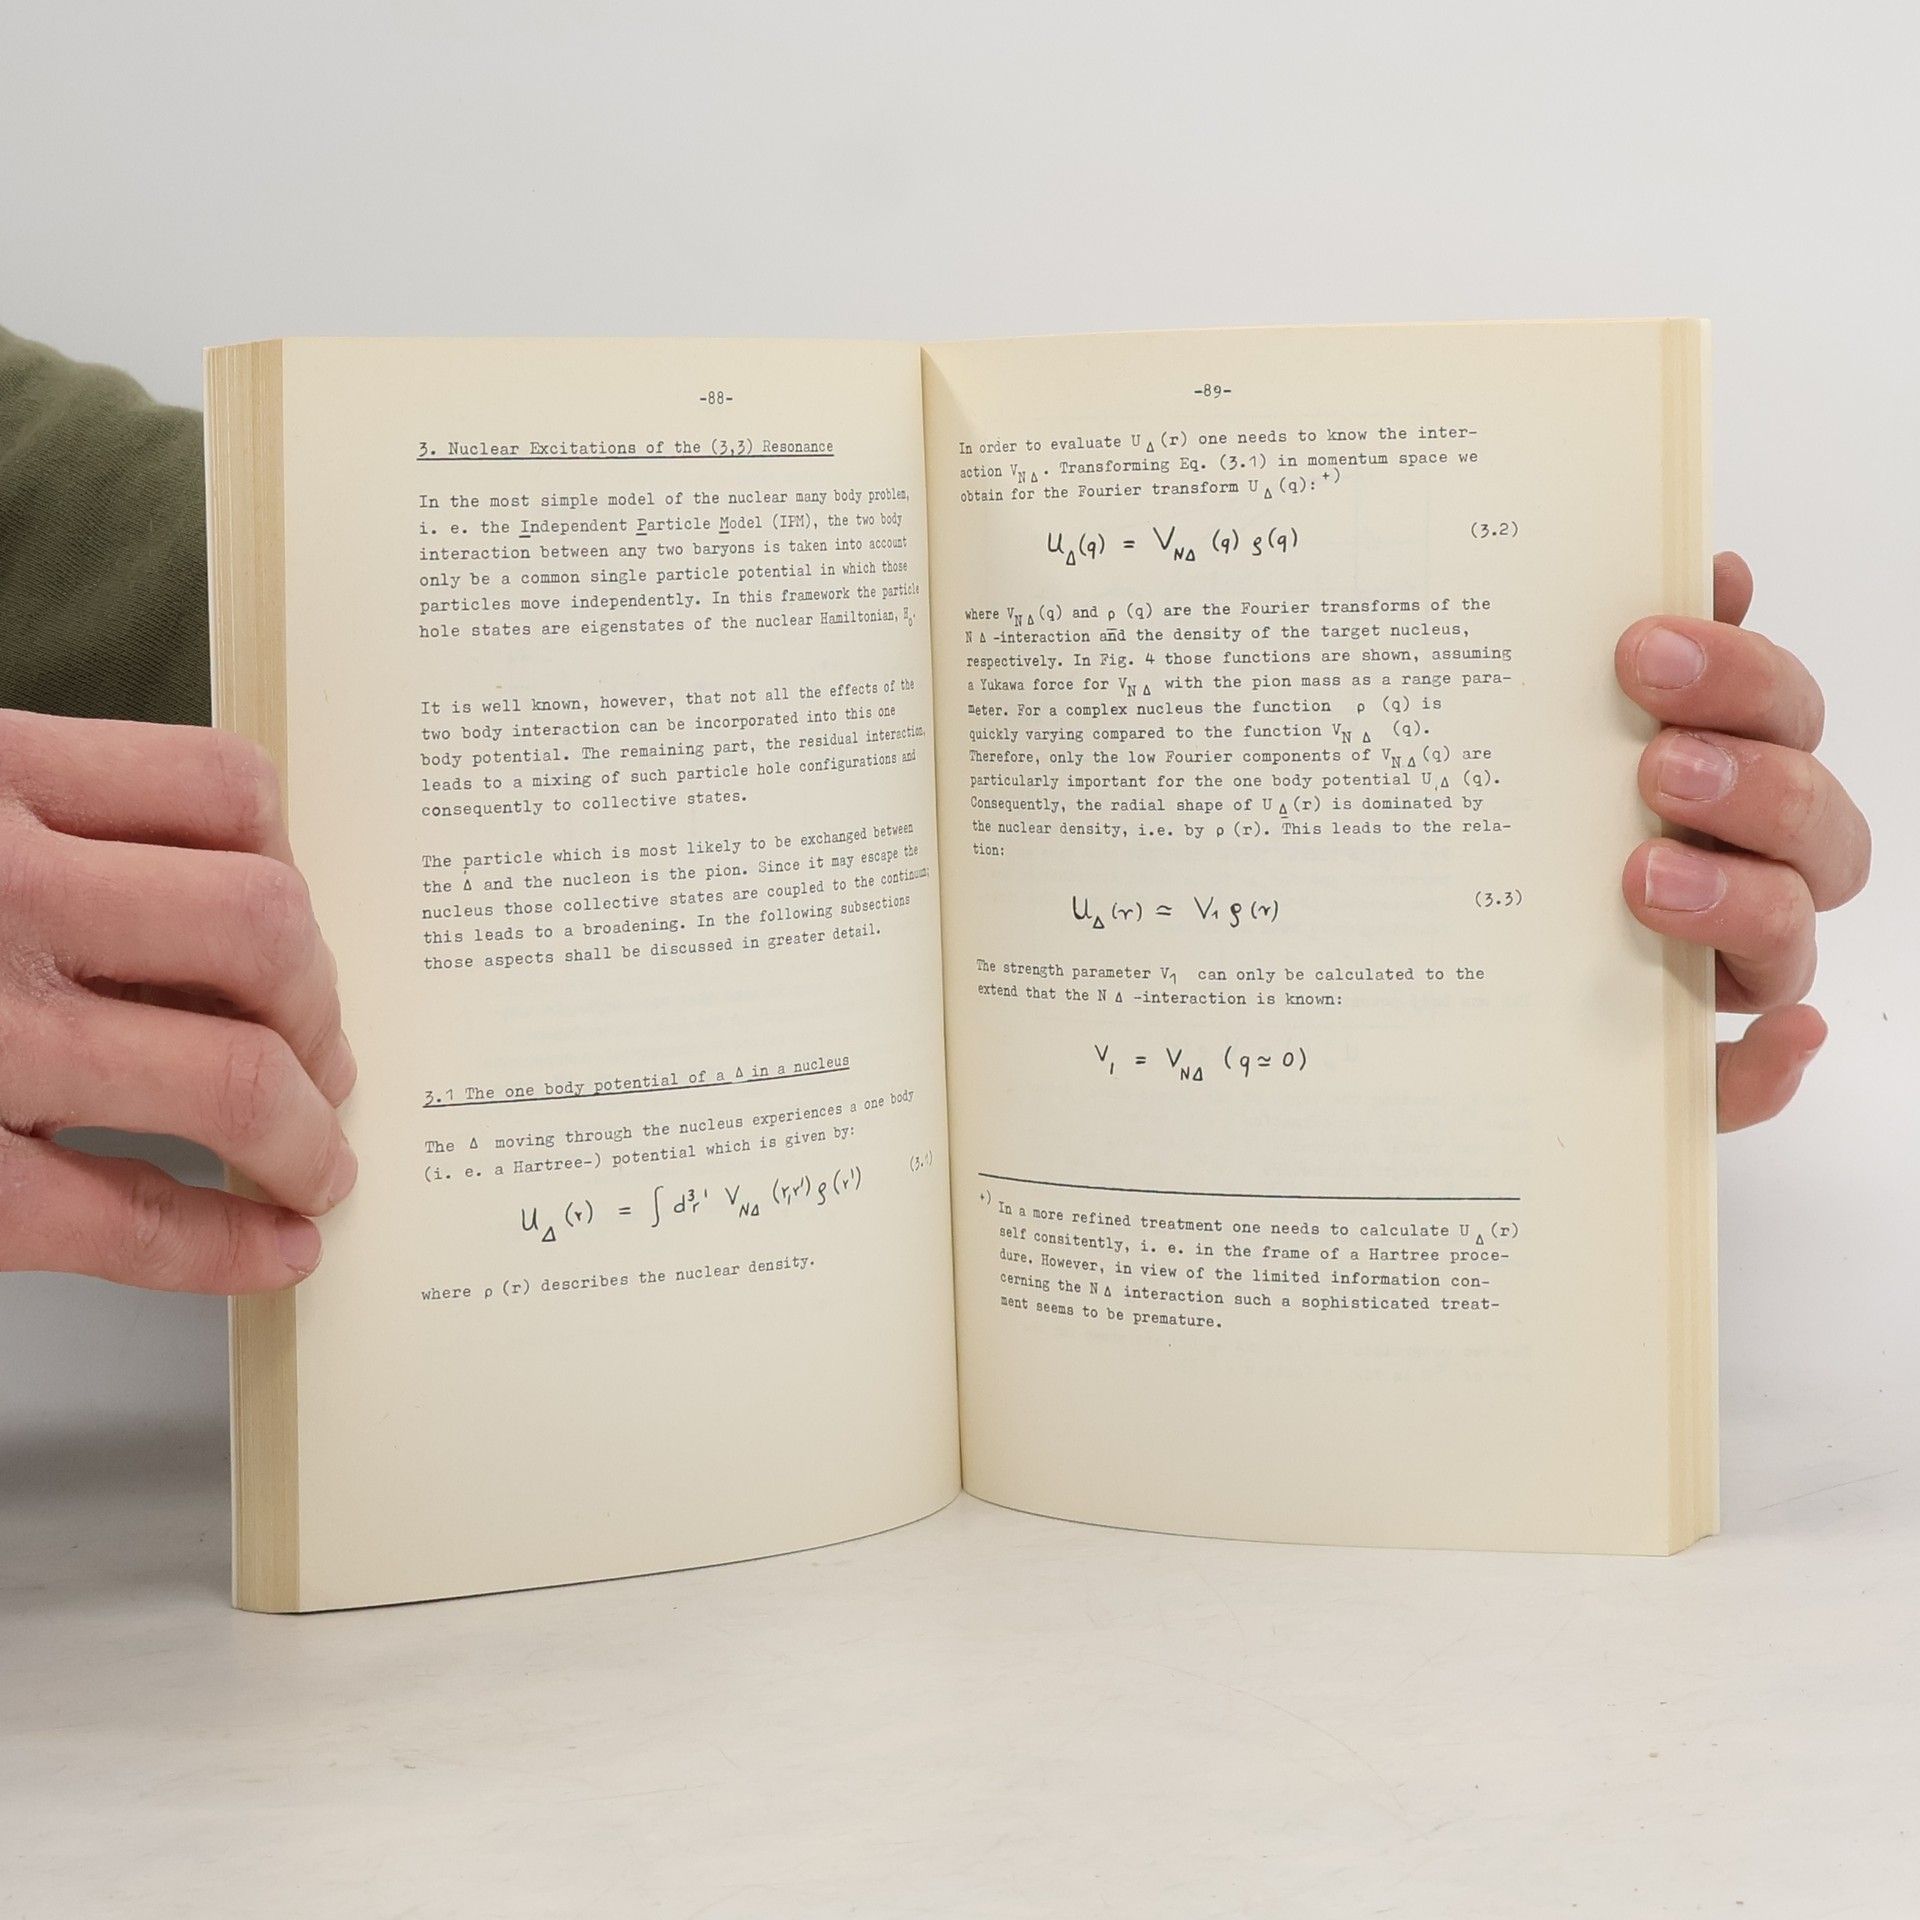 -88-
3. Nuclear Excitations of the (3,3) Resonance
In the most simple model of the nuclear many body problem,
i. e. the Independent Particle Model (IPM), the two body
interaction between any two baryons is taken into account
only be a common single particle potential in which those
particles move independently. In this framework the particle
hole states are eigenstates of the nuclear Hamiltonian, H₀.
It is well known, however, that not all the effects of the
two body interaction can be incorporated into this one
body potential. The remaining part, the residual interaction,
leads to a mixing of such particle hole configurations and
consequently to collective states.
The particle which is most likely to be exchanged between
the Δ and the nucleon is the pion. Since it may escape the
nucleus those collective states are coupled to the continuum;
this leads to a broadening. In the following subsections
those aspects shall be discussed in greater detail.
3.1 The one body potential of a Δ in a nucleus
The Δ moving through the nucleus experiences a one body
(i. e. a Hartree-) potential which is given by:
U_Δ (r) = ∫ d³r' V_NΔ (r,r') ρ(r') (3.1)
where ρ (r) describes the nuclear density.
-89-
In order to evaluate U_Δ (r) one needs to know the inter-
action V_NΔ. Transforming Eq. (3.1) in momentum space we
obtain for the Fourier transform U_Δ (q): +)
U_Δ(q) = V_NΔ (q) ρ(q) (3.2)
where V_NΔ (q) and ρ (q) are the Fourier transforms of the
N Δ -interaction and the density of the target nucleus,
respectively. In Fig. 4 those functions are shown, assuming
a Yukawa force for V_NΔ with the pion mass as a range para-
meter. For a complex nucleus the function ρ (q) is
quickly varying compared to the function V_NΔ (q).
Therefore, only the low Fourier components of V_NΔ (q) are
particularly important for the one body potential U_Δ (q).
Consequently, the radial shape of U_Δ (r) is dominated by
the nuclear density, i.e. by ρ (r). This leads to the rela-
tion:
U_Δ (r) ≃ V₁ ρ (r) (3.3)
The strength parameter V₁ can only be calculated to the
extend that the N Δ -interaction is known:
V₁ = V_NΔ (q ≃ 0)
+) In a more refined treatment one needs to calculate U_Δ (r)
self consitently, i. e. in the frame of a Hartree proce-
dure. However, in view of the limited information con-
cerning the N Δ interaction such a sophisticated treat-
ment seems to be premature.